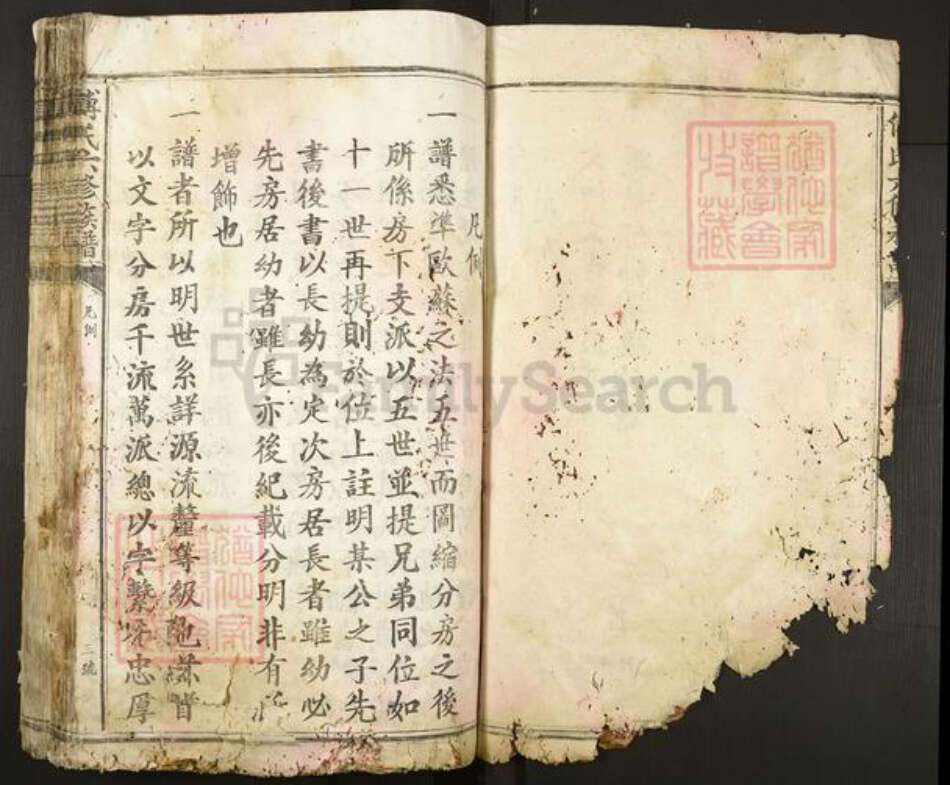 凡例
一譜悉準歐蘇之法五世而圖縮分房之後
所係房下支派以五世並提兄弟同位如
十一世再提則於位上註明某公之子先
書後書以長幼為定次房居長者雖幼必
先房居幼者雖長亦後紀載分明非有所
增飾也
一譜者所以明世系詳源流釐等級也
以文字分房千流萬派總以字繫 忠厚
氏六修族譜
凡例
三號
譜學會
收藏
FamilySearch